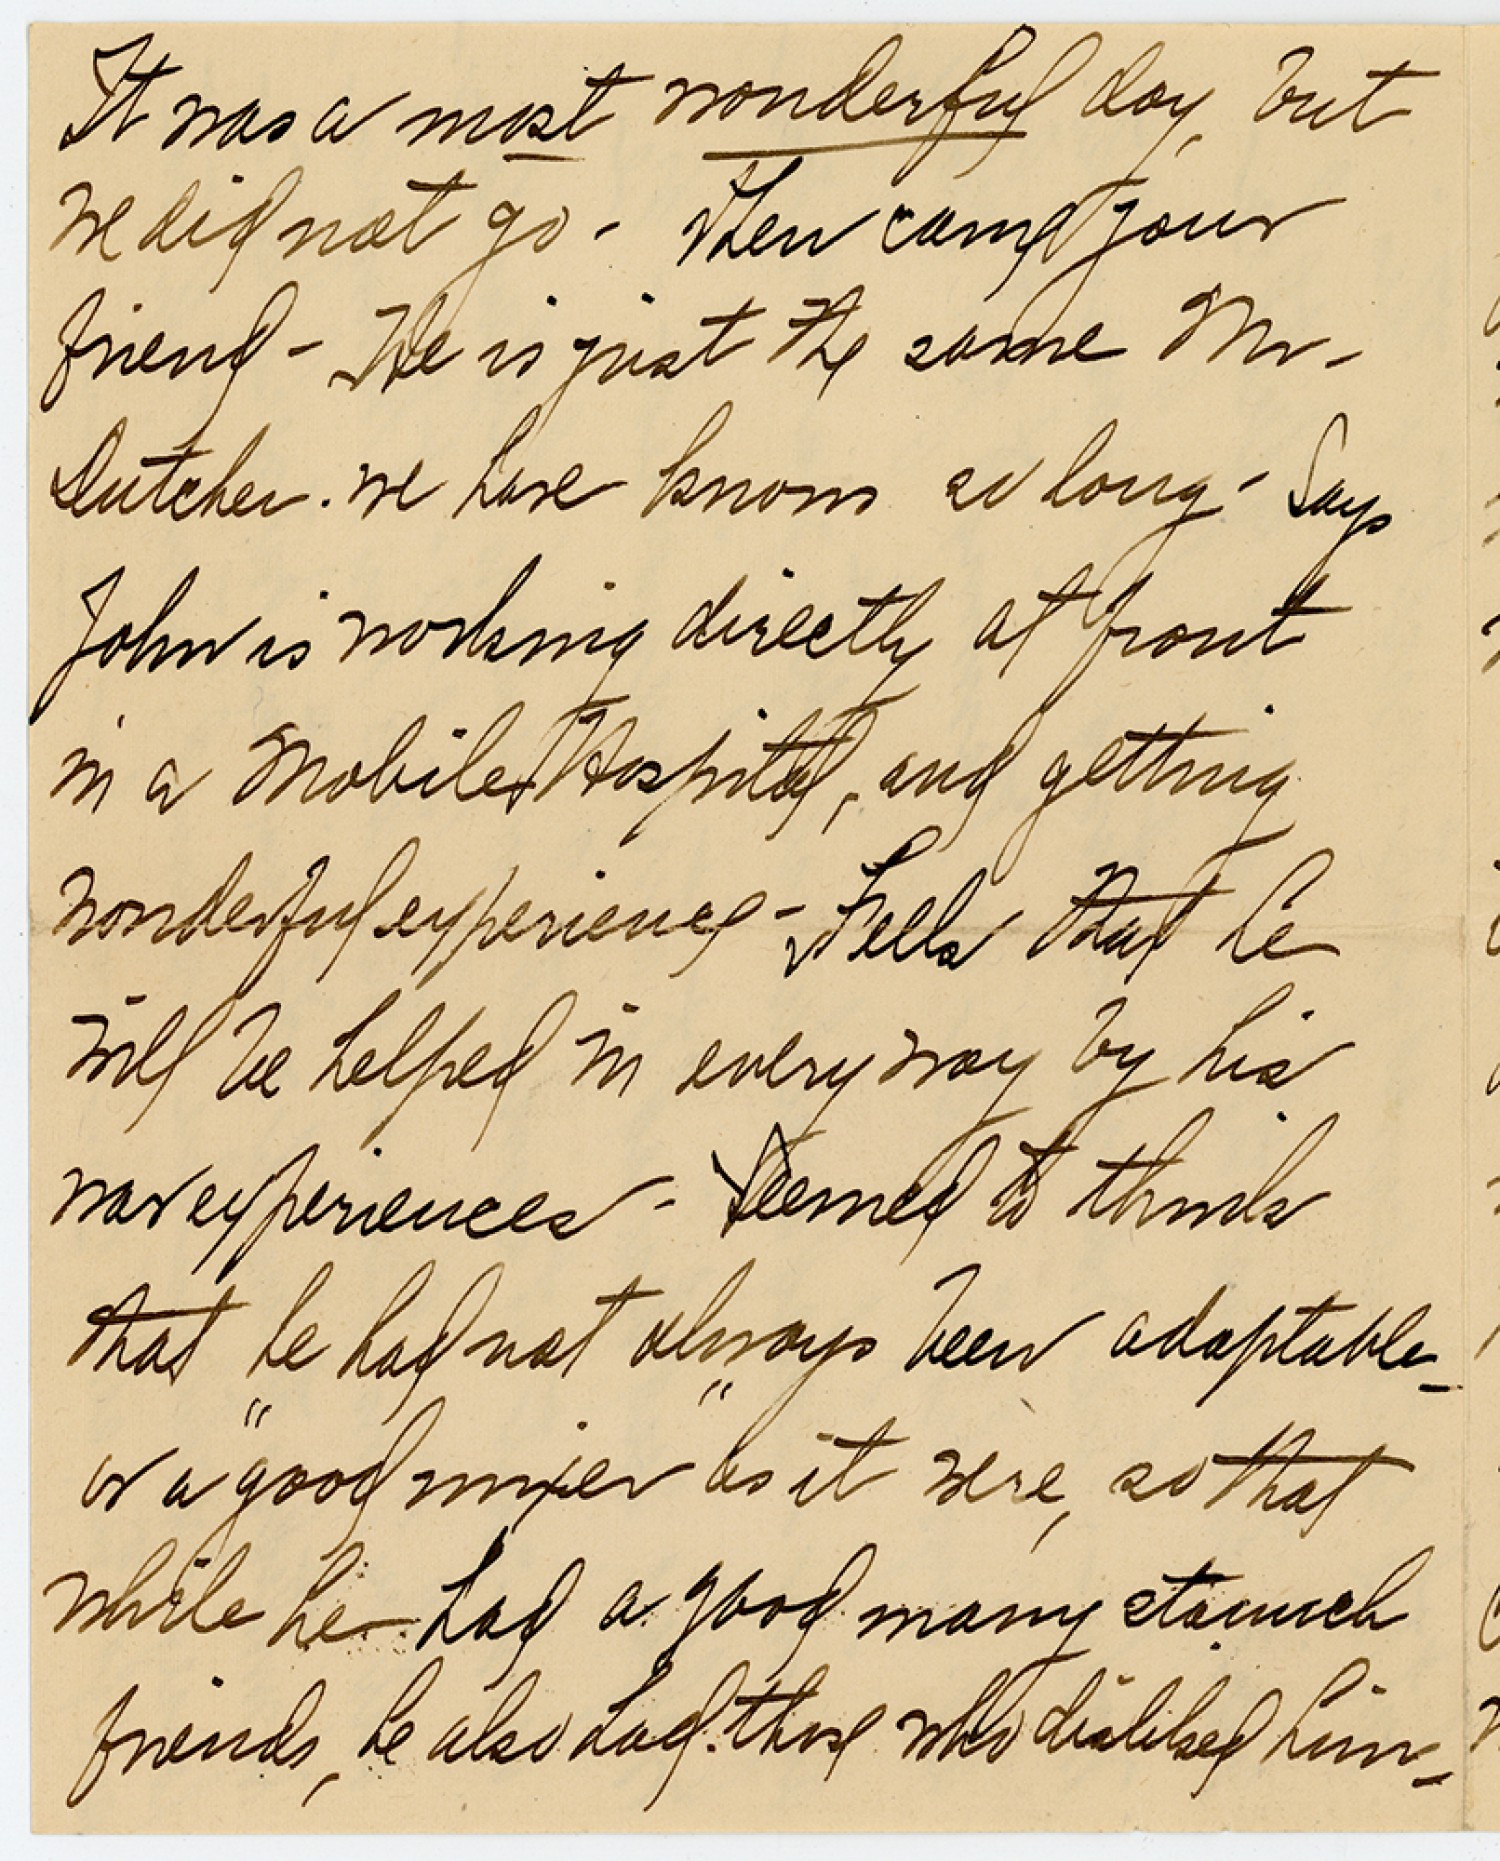 It was a most wonderful day, but
we did not go - Then came your
friend - He is just the same Mr -
Dutcher. we have known so long - Says
John is working directly at front
in a Mobile Hospital, and getting
wonderful experience - Feels that he
will be helped in every way by his
war experiences - Seemed to think
that he had not always been adaptable -
or a "good mixer" as it were, so that
while he had a good many staunch
friends, he also had those who disliked him -